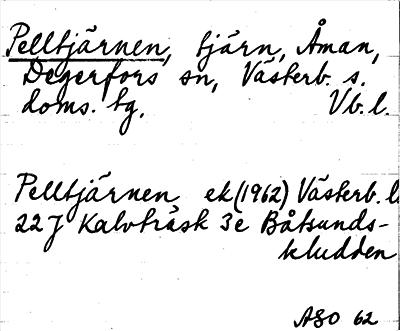 Pelltjärnen, tjärn, Åman,
Degerfors sn, Västerb. s.
doms. tg. Vb. l.
Pelltjärnen ek (1962) Västerb. l.
22 J Kalvträsk 3e Båtsunds-
kludden
ASO 62